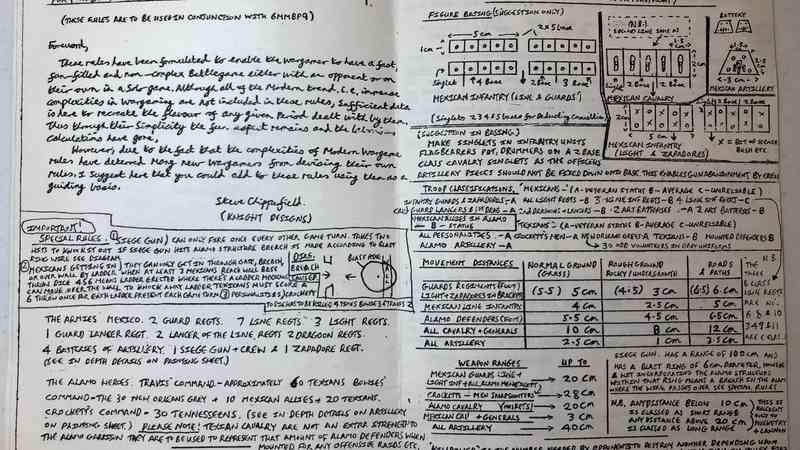 (THESE RULES ARE TO BE USED IN CONJUNCTION WITH 6MMBP9)
Foreword,
These rules have been formulated to enable the wargamer to have a fast,
fun-filled and non-complex Battlegame either with an opponent or on
their own in a Solo game. Although all of the Modern trend, I.e, increase
complexities in Wargaming are not included in these rules, Sufficient data
is here to recreate the flavour of any given Period dealt with by them,
Thus through their Simplicity the fun aspect remains and the
calculations have gone.
However, due to the fact that the complexities of Modern Wargame
rules have deterred Many new Wargamers from devising their own
rules, I suggest here that you could add to these rules using them as a
guiding basis.
Steve Chippyfield.
(KNIGHT DESIGNS)
IMPORTANT!
SPECIAL RULES. ① (SIEGE GUN) CAN ONLY FIRE ONCE EVERY OTHER GAME TURN. TAKES TWO
HITS TO KNOCK IT OUT IF SIEGE GUN HITS ALAMO STRUCTURE BREACH IS MADE ACCORDING TO BLAST
RING WERE SEE DIAGRAM.
② MEXICANS GETTING IN) THEY CAN ONLY GET IN THROUGH GATE, BREACH,
OR OVER WALL BY LADDER, WHEN AT LEAST 3 MEXICANS REACH WALL BASE
THROW DICE 4 5 6 MEANS LADDER ERECTED WHERE THERE'S A LADDER MEXICANS
CAN MOVE OVER THE WALL, TO KNOCK ANY LADDER TEXICANS MUST SCORE A
6 THROW ONCE FOR EACH LADDER PRESENT EACH GAME TURN ③ PERSONALITIES) CROCKETT
DIAG.
BREACH
BLAST RING
THE ARMIES MEXICO. 2 GUARD REGTS. 7 LINE REGTS 3 LIGHT REGTS.
1 GUARD LANCER REGT. 2 LANCER OF THE LINE REGTS 2 DRAGOON REGTS.
4 BATTERIES OF ARTILLERY. 1 SIEGE GUN + CREW & 1 ZAPADORE REGT.
(SEE IN DEPTH DETAILS ON PAINTING SHEET.)
THE ALAMO HEROES. TRAVIS' COMMAND - APPROXIMATELY 60 TEXIANS BOWIES'
COMMAND - THE 30 NEW ORLEANS GREY + 10 MEXICAN ALLIES + 20 TEXIANS.
CROCKETT'S COMMAND = 30 TENNESSEENS. (SEE IN DEPTH DETAILS ON ARTILLERY
ON PAINTING SHEET.) PLEASE NOTE! TEXICAN CAVALRY ARE NOT AN EXTRA STRENGTH TO
THE ALAMO GARRISON THEY ARE TO BE USED TO REPRESENT THAT AMOUNT OF ALAMO DEFENDERS WHEN
MOUNTED FOR ANY OFFENSIVE RAIDS ETC.
FIGURE BASING (SUGGESTION ONLY)
5 cm
2 X 5 BASE
1cm
Singlet
4 Base
2 Base
3 Base
MEXICAN INFANTRY (LINE & GUARDS)
(Singlets 2 3 4 & 5 bases for Deducting Casualties)
(N.B.)
4 cm
2cm
Singlet
2 Base
2 Base
MEXICAN CAVALRY
BATTERY
MEXICAN ARTILLERY
5 cm
MEXICAN INFANTRY
(LIGHT & ZAPADORES)
(SUGGESTION IN BASING)
MAKE SINGLETS IN INFANTRY UNITS
FLAGBEARERS FOT, DRUMMERS ON A 2 BASE
CLASS CAVALRY SINGLETS AS THE OFFICERS
ARTILLERY PIECES SHOULD NOT BE FIXED DOWN ONTO BASE THIS ENABLES GUN ABANDONMENT BY CREW
TROOP CLASSIFICATIONS, "MEXICANS" - (A-VETERAN STATUS B-AVERAGE C-UNRELIABLE)
INFANTRY GUARDS & ZAPADORES - A ALL LIGHT REGTS - B 3 LINE INF REGTS - B 4 LINE INF REGTS - C
MEXICAN ALLIES IN ALAMO
B - STATUS
"TEXICANS" - (A-VETERAN STATUS B-AVERAGE C-UNRELIABLE)
ALL PERSONALITIES - A CROCKETT'S MEN - A NEWORLEAN GREYS - A TEXICANS - B MOUNTED DEFENDERS B
ALAMO ARTILLERY - A
30 ODD VOLUNTEERS IN GREY UNIFORMS
MOVEMENT DISTANCES
NORMAL GROUND
(GRASS)
ROUGH GROUND
ROCKY / UNDERGROWTH
ROADS
& PATHS
GUARDS REGIMENTS (FOOT)
LIGHT + ZAPADORES IN BRACKETS
(5·5) 5 cm
(4·5) 3 cm
(6·5) 6 cm
MEXICAN LINE INFANTRY
4 cm
2·5 cm
5 cm
ALAMO DEFENDERS (FOOT)
5·5 cm
4·5 cm
6·5 cm
ALL CAVALRY + GENERALS
10 cm
8 cm
12 cm
ALL ARTILLERY
2·5 cm
1 cm
3·5 cm
THE N.B.
THREE
B CLASS
LINE REGTS
ARE NO.
WEAPON RANGES
UP TO
MEXICAN GUARDS LINE +
LIGHT INF + ALL ALAMO MEN (NOT)
20 cm
CROCKETTS - MEN SHARPSHOOTERS
28 cm
ALAMO CAVALRY
20 cm
MEXICAN CAV + GENERALS
3 cm
ALL ARTILLERY
40 cm
SIEGE GUN. HAS A RANGE OF 100 cm AND
HAS A BLAST RING OF 6 cm DIAMETER, WHICH
WITHIN THAT RING MEANS A BREACH IN THE ALAMO
N.B. ANY DISTANCE BELOW 10 cm
IS CLASSED AS SHORT RANGE
ANY DISTANCE ABOVE 20 cm
IS CALLED AS LONG RANGE
THIS IS
RELEVENT
ONLY TO
MUSKETRY
+ CANNON